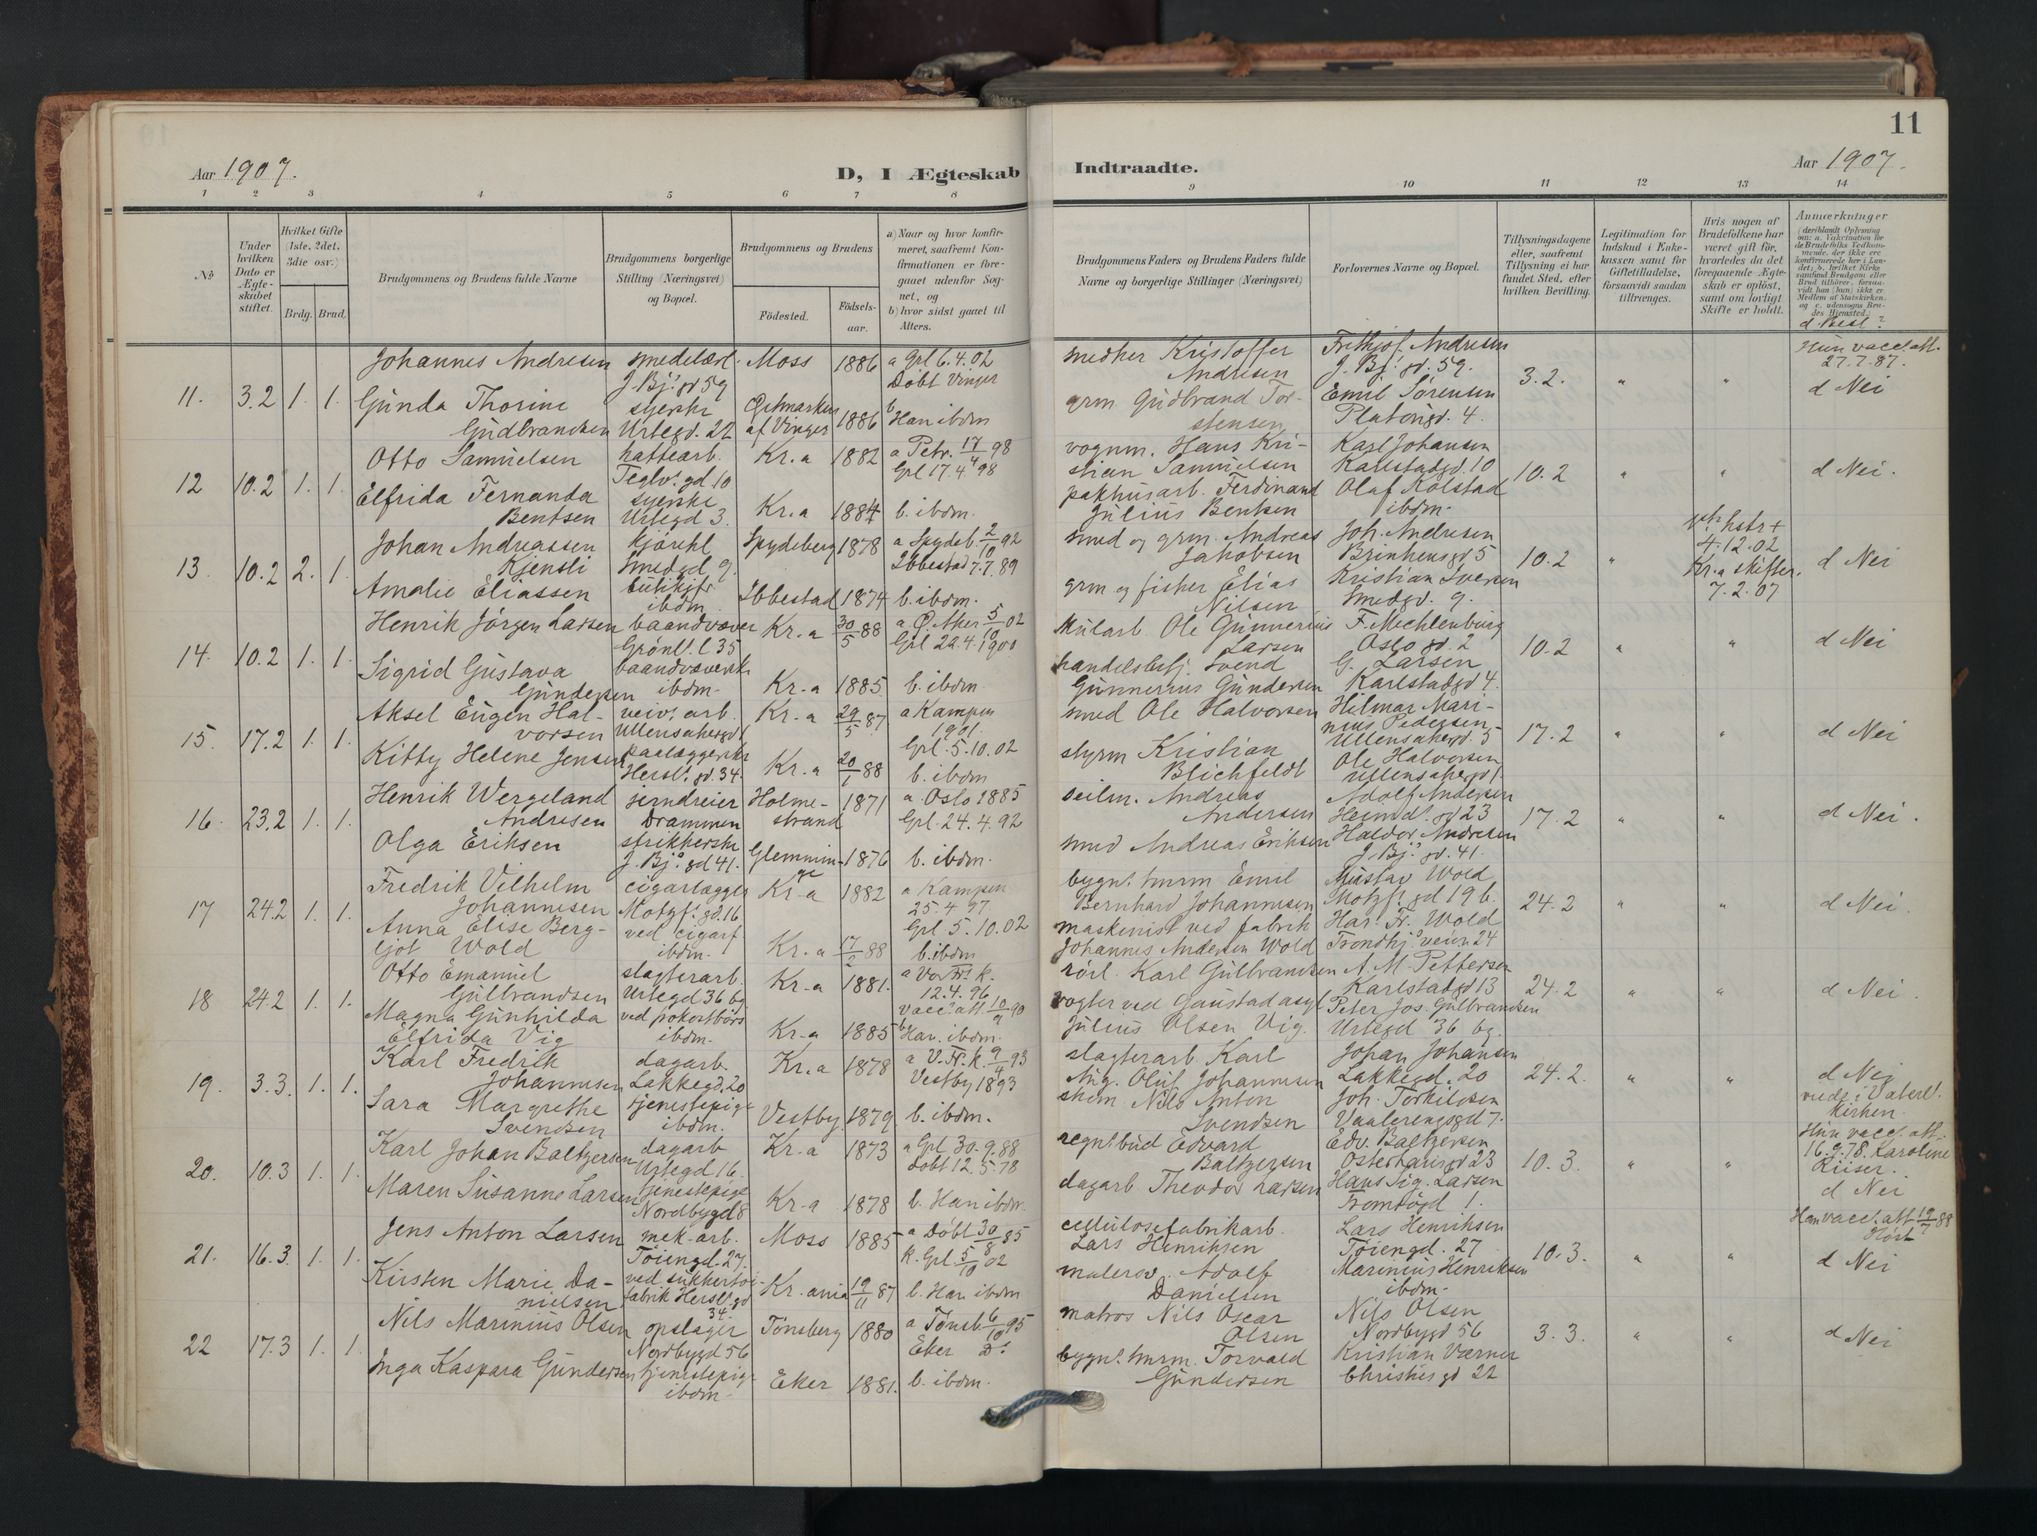 11
Aar 1907.
D, I Ægteskab
Indtraadte.
Aar 1907.
1 2 3 4 5 6 7 8 9 10 11 12 13 14
No
Under hvilken Dato er Ægteskabet stiftet.
Hvilket Gifte (1ste, 2det, 3die osv.)
Brdg. Brud.
Brudgommens og Brudens fulde Navne
Brudgommens borgerlige Stilling (Næringsvei) og Bopæl.
Brudgommens og Brudens
Födested.
Födsels-aar.
a) Naar og hvor konfirmeret, saafremt Konfirmationen er foregaaet udenfor Sognet, og
b) hvor sidst gaaet til Alters.
Brudgommens Faders og Brudens Faders fulde Navne og borgerlige Stillinger (Næringsvei)
Forlovernes Navne og Bopæl.
Tillysningsdagene eller, saafremt Tillysning ei har fundet Sted, efter hvilken Bevilling.
Legitimation for Indskud i Enkekassen samt for Giftetilladelse, forsaavidt saadan tiltrænges.
Hvis nogen af Brudefolkene har været gift før, hvorledes da det foregaaende Ægteskab er oplöst, samt om lovligt Skifte er holdt.
Anmærkninger
(deriblandt Oplysning om: a. Vakcination for de Brudefolks Vedkommende, der ikke ere konfirmerede her i Landet; b. hvilket Kirkesamfund Brudgom eller Brud tilhörer, forsaavidt han (hun) ikke er Medlem af Statskirken, og c. udensogns Brudes Hjemsted.)
d. Besl.?
Johannes Andresen smedelærl. Moss 1886 a Grl 6.4.02 smedker Kristoffer Frithjof Andresen Hun vacc. att.
J. Bj. gd 59 Døbt Vinger Andresen J. Bj. gd. 59. 27.7.87.
11. 3.2 1. 1. Gunda Thorine syerske 1886 b Han ibdm grm Gudbrand Tor- Emil Sørensen 3.2. " " d Nei
Gudbrandsen Urtegd. 22 af Vinger stensen Platousgd. 4.
Otto Samuelsen hattearb. Kr.a 1882 a Petr. 17/4 98 vognm. Hans Kri- Karl Johansen
Teglv. gd 10 Grl 17.4.98 stian Samuelsen Karlstadgd. 10
12 10.2 1. 1. Elfrida Fernanda syerske Kr.a 1884 b. ibdm. pakhusarb. Ferdinand Olaf Kolstad 10.2 " " d Nei.
Bentsen Urtegd 3. Julius Bentsen ibdm.
Johan Andreassen kjørekl Spydeberg 1878 a Spydeb. 2/10 92 smed og grm. Andreas Joh. Andresen
Kjensli Smedgd 9. Ibbestad 7.7.89 Jakobsen 4.12.02
13. 10.2 2. 1. Amalie Eliassen ibdm Ibbestad 1874 b. ibdm. grm og fisker Elias Kristian Iversen 10.2 " Kr.a skifter. d Nei
Nilsen Smedgd. 9. 7.2.07
Henrik Jørgen Larsen baandvæver Kr.a 30/5 88 a Ø. Aker 5/10 02 Ole Gunnerius F. Mechlenburg
Grønl. l 35 Grl 29.4.1900 Larsen Oslo gd. 2
14. 10.2 1. 1. Sigrid Gustava baandvæversk Kr.a 1885. b. ibdm. handelsbetj. Svend G. Larsen 10.2 " " d Nei
Gundersen ibdm. Gunnerius Gundersen Karlstadgd 4.
Aksel Eugen Hal- veiv. arb. Kr.a 29/5 87 a Kampen smed Ole Halvorsen Hilmar Mari-
vorsen Ullensakergd 1 1901. nius Pedersen
15. 17.2 1. 1. Kitty Helene Jensen Kr.a 20/1 88 Grl. 5.10.02 styrm Kristian Ullensakergd. 5 17.2 " " d Nei
Hersl. gd. 34. b. ibdm Blichfeldt Ole Halvorsen
Ullensakergd 1.
Henrik Wergeland jerndreier Holme- 1871 a. Oslo 1885 seilm. Andreas Adolf Andersen
Andresen Drammen strand Grl. 24.4.92 Andersen Heimd. gd 23
16. 23.2 1. 1. Olga Eriksen strikkerske Glemminge 1876 b. ibdm. smed Andreas Eriksen Haldor Andresen 17.2 " " d Nei.
J. Bj. gd 41. J. Bj. gd. 41.
Fredrik Vilhelm cigarlægger Kr.a 1882 a Kampen bygn. smrm Emil Gustav Wold
Johannesen Motzf. gd. 16 25.4 97. Bernhard Johannesen Motzf. gd 19 b.
17 24.2 1. 1. Anna Elise Berg- ved cigarf. Grl 5.10.02 maskenist ved fabrik Har. Fr. Wold 24.2 " " d Nei.
ljot Wold ibdm. Kr.a 88 b. ibdm Johannes Andersen Wold Trondhj. veien 24
Otto Emanuel slagterarb. Kr.a 1881. a Vor Fr. k. rørl. Karl Gulbrandsen A. M. Pettersen
Gulbrandsen Urtegd 36 bg 12.4.96 Karlstadgd 13
18 24.2 1. 1. Magna Gunhilda ved pokostbørs vacc. att 10/9 90 vogter ved Gaustad asyl Peter Jos. Gulbrandsen 24.2 " " d Nei.
Elfrida Vig ibdm. Kr.a 1885 b Han. ibdm. Julius Olsen Vig. Urtegd 36 bg.
Karl Fredrik dagarb. Kr.a 1878 a V. Fr. k 9/4 93 slagterarb. Karl Johan Johansen
Johannesen Lakkegd. 20 Vestby 1893 Aug. Oluf Johannesen Lakkegd. 20
19. 3.3. 1. 1. Sara Margrethe tjenestepige Vestby 1879 b. ibdm. Nils Anton Joh. Torkildsen 24.2. " " d Nei
Svendsen ibdm. Svendsen Vaalerengsgd 7. viede i Vaterl. kirken.
Karl Johan Baltzersen dagarb Kr.a 1873 a Grl 30.9.88 regnt. bud Edvard Edv. Baltzersen Hun vacc. att.
Urtegd 16. Døbt 12.5.78 Baltzersen Osterhausgd 23 16.9.78. Karoline
20. 10.3 1. 1. Maren Susanne Larsen tjenestepige Kr.a 1878 b. Han ibdm. dagarb. Theodor Larsen Hans Sig. Larsen 10.3. " " Riiser.
Nordbygd 8 Tromsøgd 1. d Nei
Jens Anton Larsen mek. arb. Moss 1885 a Døbt 30/8 85 cellulosefabrikarb. Lars Henriksen Han vacc. att 19/7 88
Tøiengd. 27. k. Grl. 5/10 02 Lars Henriksen Tøiengd. 27
21. 16.3. 1. 1. Kirsten Marie Da- ved sukkertøi- Kr.ania 19/11 87 b. Han ibdm malersv. Adolf Marenius Henriksen 10.3. " " d Nei
nielsen fabrik Hersl. gd 34. Danielsen ibdm.
Nils Marinius Olsen opslager Tønsberg 1880 a Tønsb. 6/10 95 matros Nils Oscar Nils Olsen
Nordbygd 56 Eker Do Olsen Nordbygd 56
22 17.3 1. 1. Inga Kaspara Gundersen tjenestepige Eker 1881. b. ibdm. bygnt. smrm. Torvald Kristian Værner 3.3. " " d Nei
ibdm. Gundersen Christiesgd 22